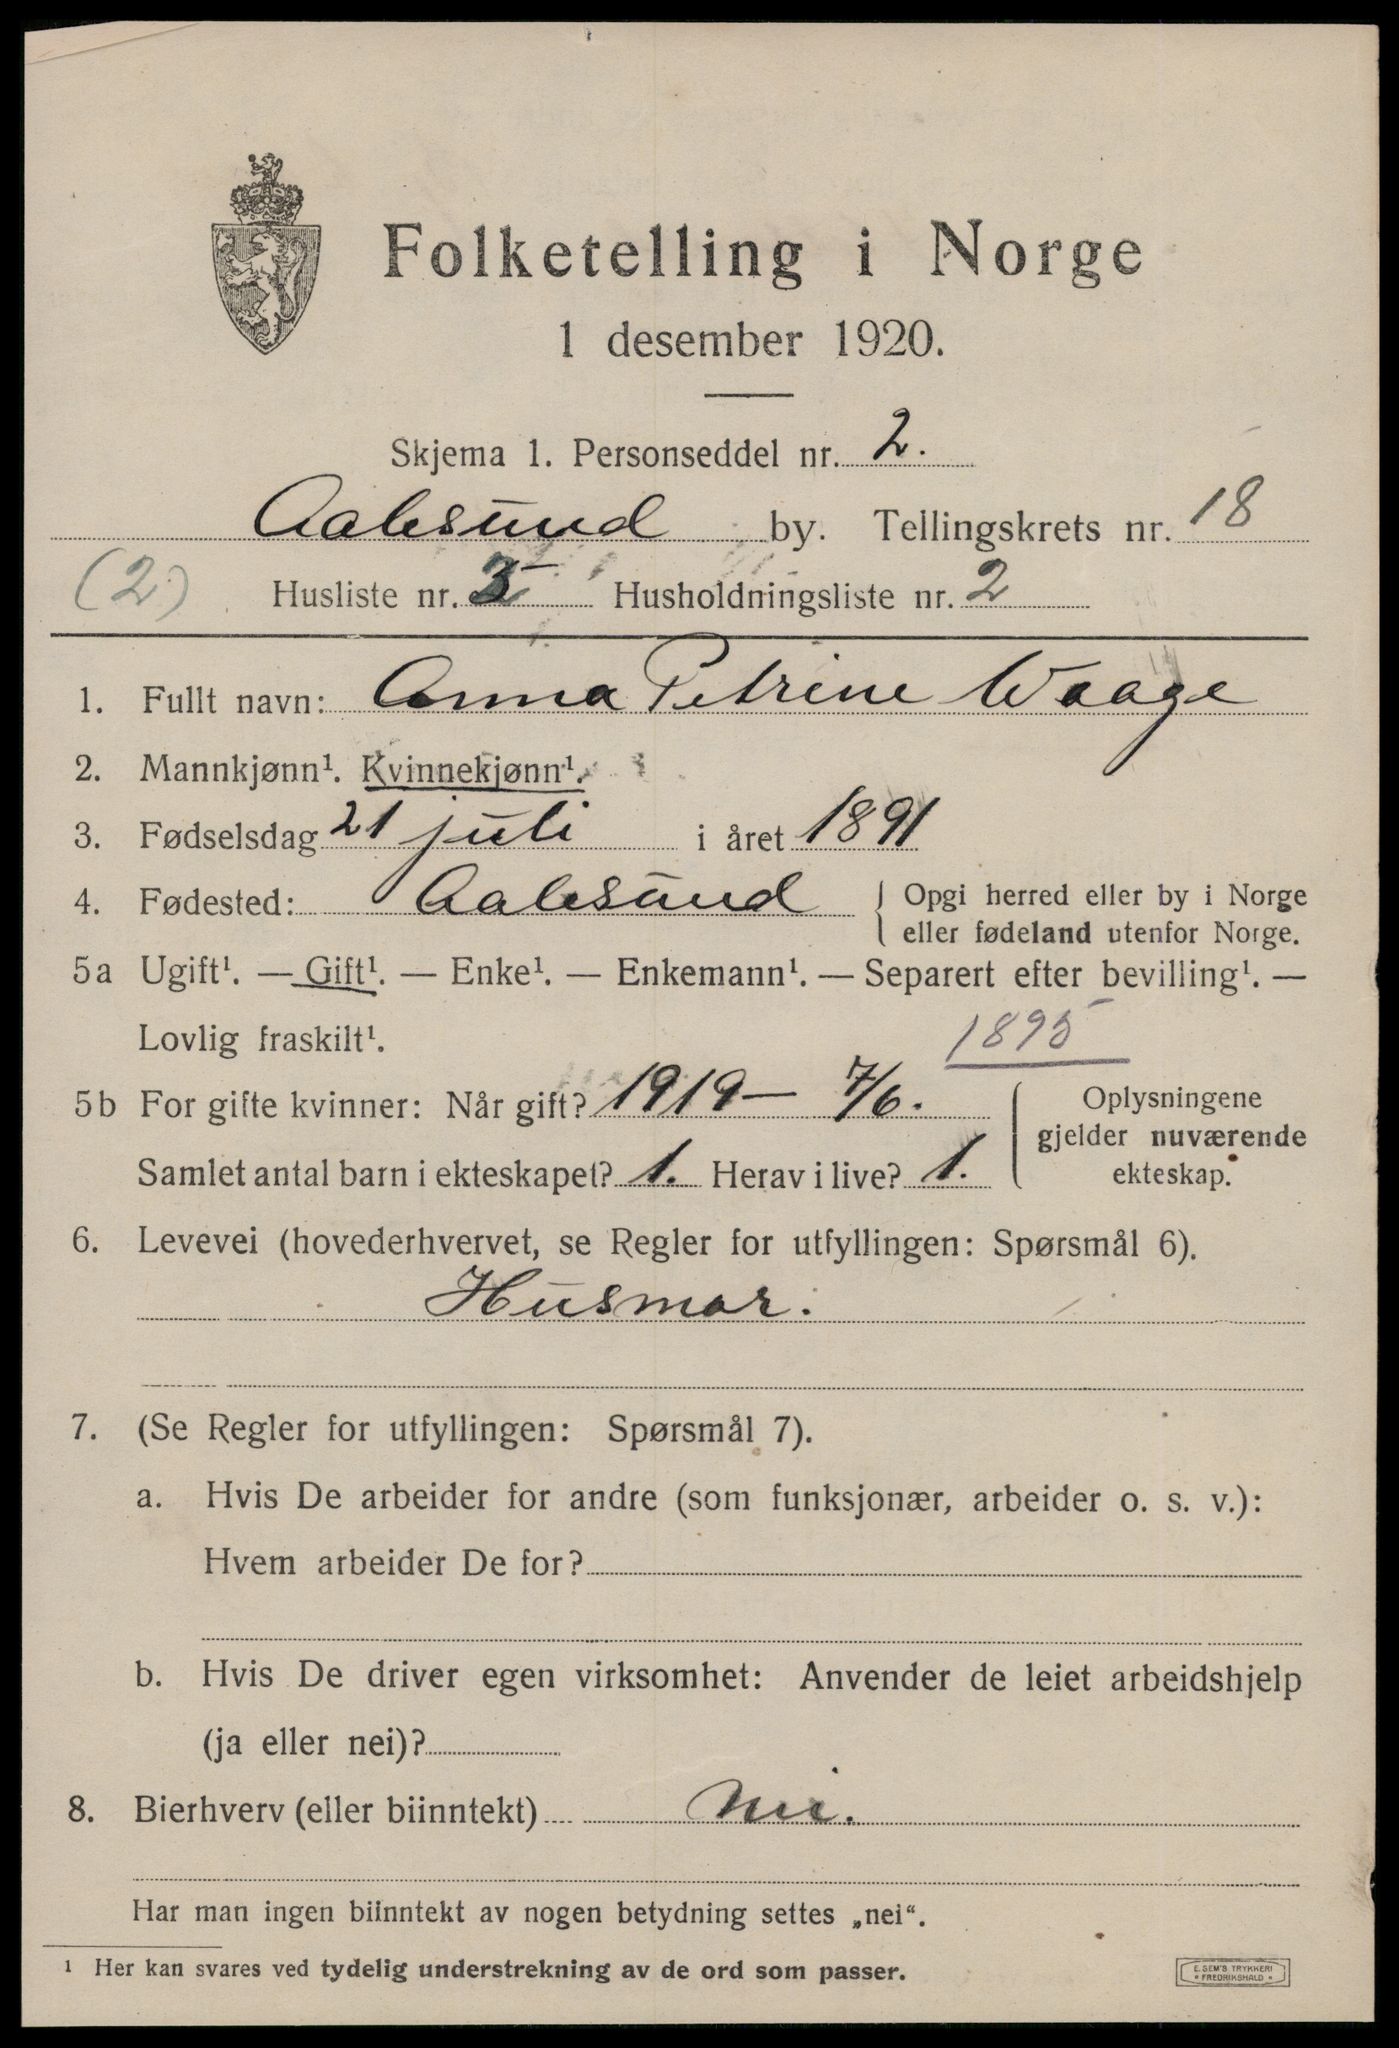 Folketelling i Norge
1 desember 1920.
Skjema 1. Personseddel nr. 2.
Aalesund by. Tellingskrets nr. 18
(2) Husliste nr. Husholdningsliste nr. 2
1. Fullt navn: Anna Petrine Waage
2. Mannkjønn¹. Kvinnekjønn¹.
3. Fødselsdag 21 juli i året 1891
4. Fødested: Aalesund { Opgi herred eller by i Norge
eller fødeland utenfor Norge.
5a Ugift¹. — Gift¹. — Enke¹. — Enkemann¹. — Separert efter bevilling¹. —
Lovlig fraskilt¹.
1895
5b For gifte kvinner: Når gift? 1919 — 7/6. Oplysningene
gjelder nuværende
Samlet antal barn i ekteskapet? 1. Herav i live? 1. ekteskap.
6. Levevei (hovederhvervet, se Regler for utfyllingen: Spørsmål 6).
Husmor.
7. (Se Regler for utfyllingen: Spørsmål 7).
a. Hvis De arbeider for andre (som funksjonær, arbeider o. s. v.):
Hvem arbeider De for?
b. Hvis De driver egen virksomhet: Anvender de leiet arbeidshjelp
(ja eller nei)?
8. Bierhverv (eller biinntekt) nei.
Har man ingen biinntekt av nogen betydning settes „nei“.
¹ Her kan svares ved tydelig understrekning av de ord som passer.
E. SEM'S TRYKKERI
FREDRIKSHALD